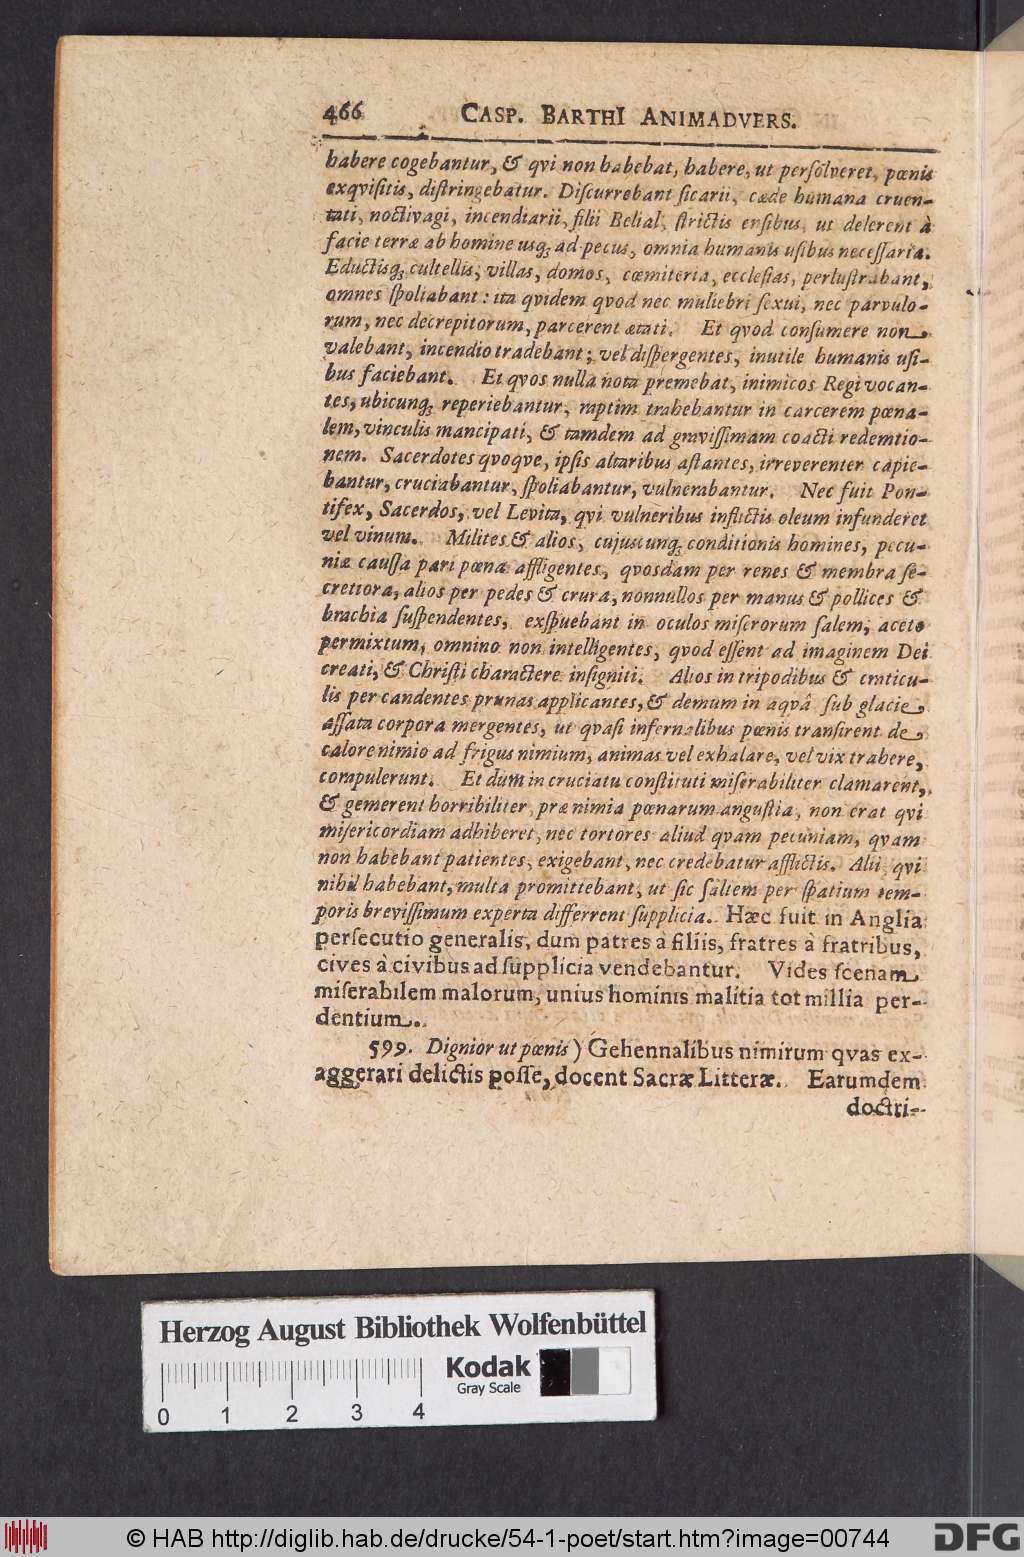 466 CASP. BARTHI ANIMADVERS.
habere cogebantur, & qvi non habebat, habere, ut persolveret, pœnis
exqvisitis, distringebatur. Discurrebant sicarii, cæde humana cruen-
tati, noctivagi, incendiarii, filii Belial, strictis ensibus, ut delerent à
facie terræ ab homine usq; ad pecus, omnia humanis usibus necessaria.
Eductisq; cultellis, villas, domos, cœmiteria, ecclesias, perlustrabant,
omnes spoliabant: ita qvidem qvod nec muliebri sexui, nec parvulo-
rum, nec decrepitorum, parcerent ætati. Et qvod consumere non
valebant, incendio tradebant; vel dispergentes, inutile humanis usi-
bus faciebant. Et qvos nulla nota premebat, inimicos Regi vocan-
tes, ubicunq; reperiebantur, raptim trahebantur in carcerem pœna-
lem, vinculis mancipati, & tamdem ad gravissimam coacti redemtio-
nem. Sacerdotes qvoqve, ipsis altaribus astantes, irreverenter capie-
bantur, cruciabantur, spoliabantur, vulnerabantur. Nec fuit Pon-
tifex, Sacerdos, vel Levita, qvi vulneribus inflictis oleum infunderet
vel vinum. Milites & alios, cujuscunq; conditionis homines, pecu-
niæ caussa pari pœna affligentes, qvosdam per renes & membra se-
cretiora, alios per pedes & crura, nonnullos per manus & pollices &
brachia suspendentes, exspuebant in oculos miserorum salem, aceto
permixtum, omnino non intelligentes, qvod essent ad imaginem Dei
creati, & Christi charactere insigniti. Alios in tripodibus & craticu-
lis per candentes prunas applicantes, & demum in aqvâ sub glacie
assata corpora mergentes, ut qvasi infernalibus pœnis transirent de
calore nimio ad frigus nimium, animas vel exhalare, vel vix trahere,
compulerunt. Et dum in cruciatu constituti miserabiliter clamarent,
& gemerent horribiliter, præ nimia pœnarum angustia, non erat qvi
misericordiam adhiberet, nec tortores aliud qvam pecuniam, qvam
non habebant patientes, exigebant, nec credebatur afflictis. Alii, qvi
nihil habebant, multa promittebant, ut sic saltem per spatium tem-
poris brevissimum experta differrent supplicia. Hæc fuit in Anglia
persecutio generalis, dum patres à filiis, fratres à fratribus,
cives à civibus ad supplicia vendebantur. Vides scenam
miserabilem malorum, unius hominis malitia tot millia per-
dentium.
599. Dignior ut pœnis) Gehennalibus nimirum qvas ex-
aggerari delictis posse, docent Sacræ Litteræ. Earumdem
doctri-
Herzog August Bibliothek Wolfenbüttel
Kodak
Gray Scale
0 1 2 3 4
© HAB http://diglib.hab.de/drucke/54-1-poet/start.htm?image=00744
DFG